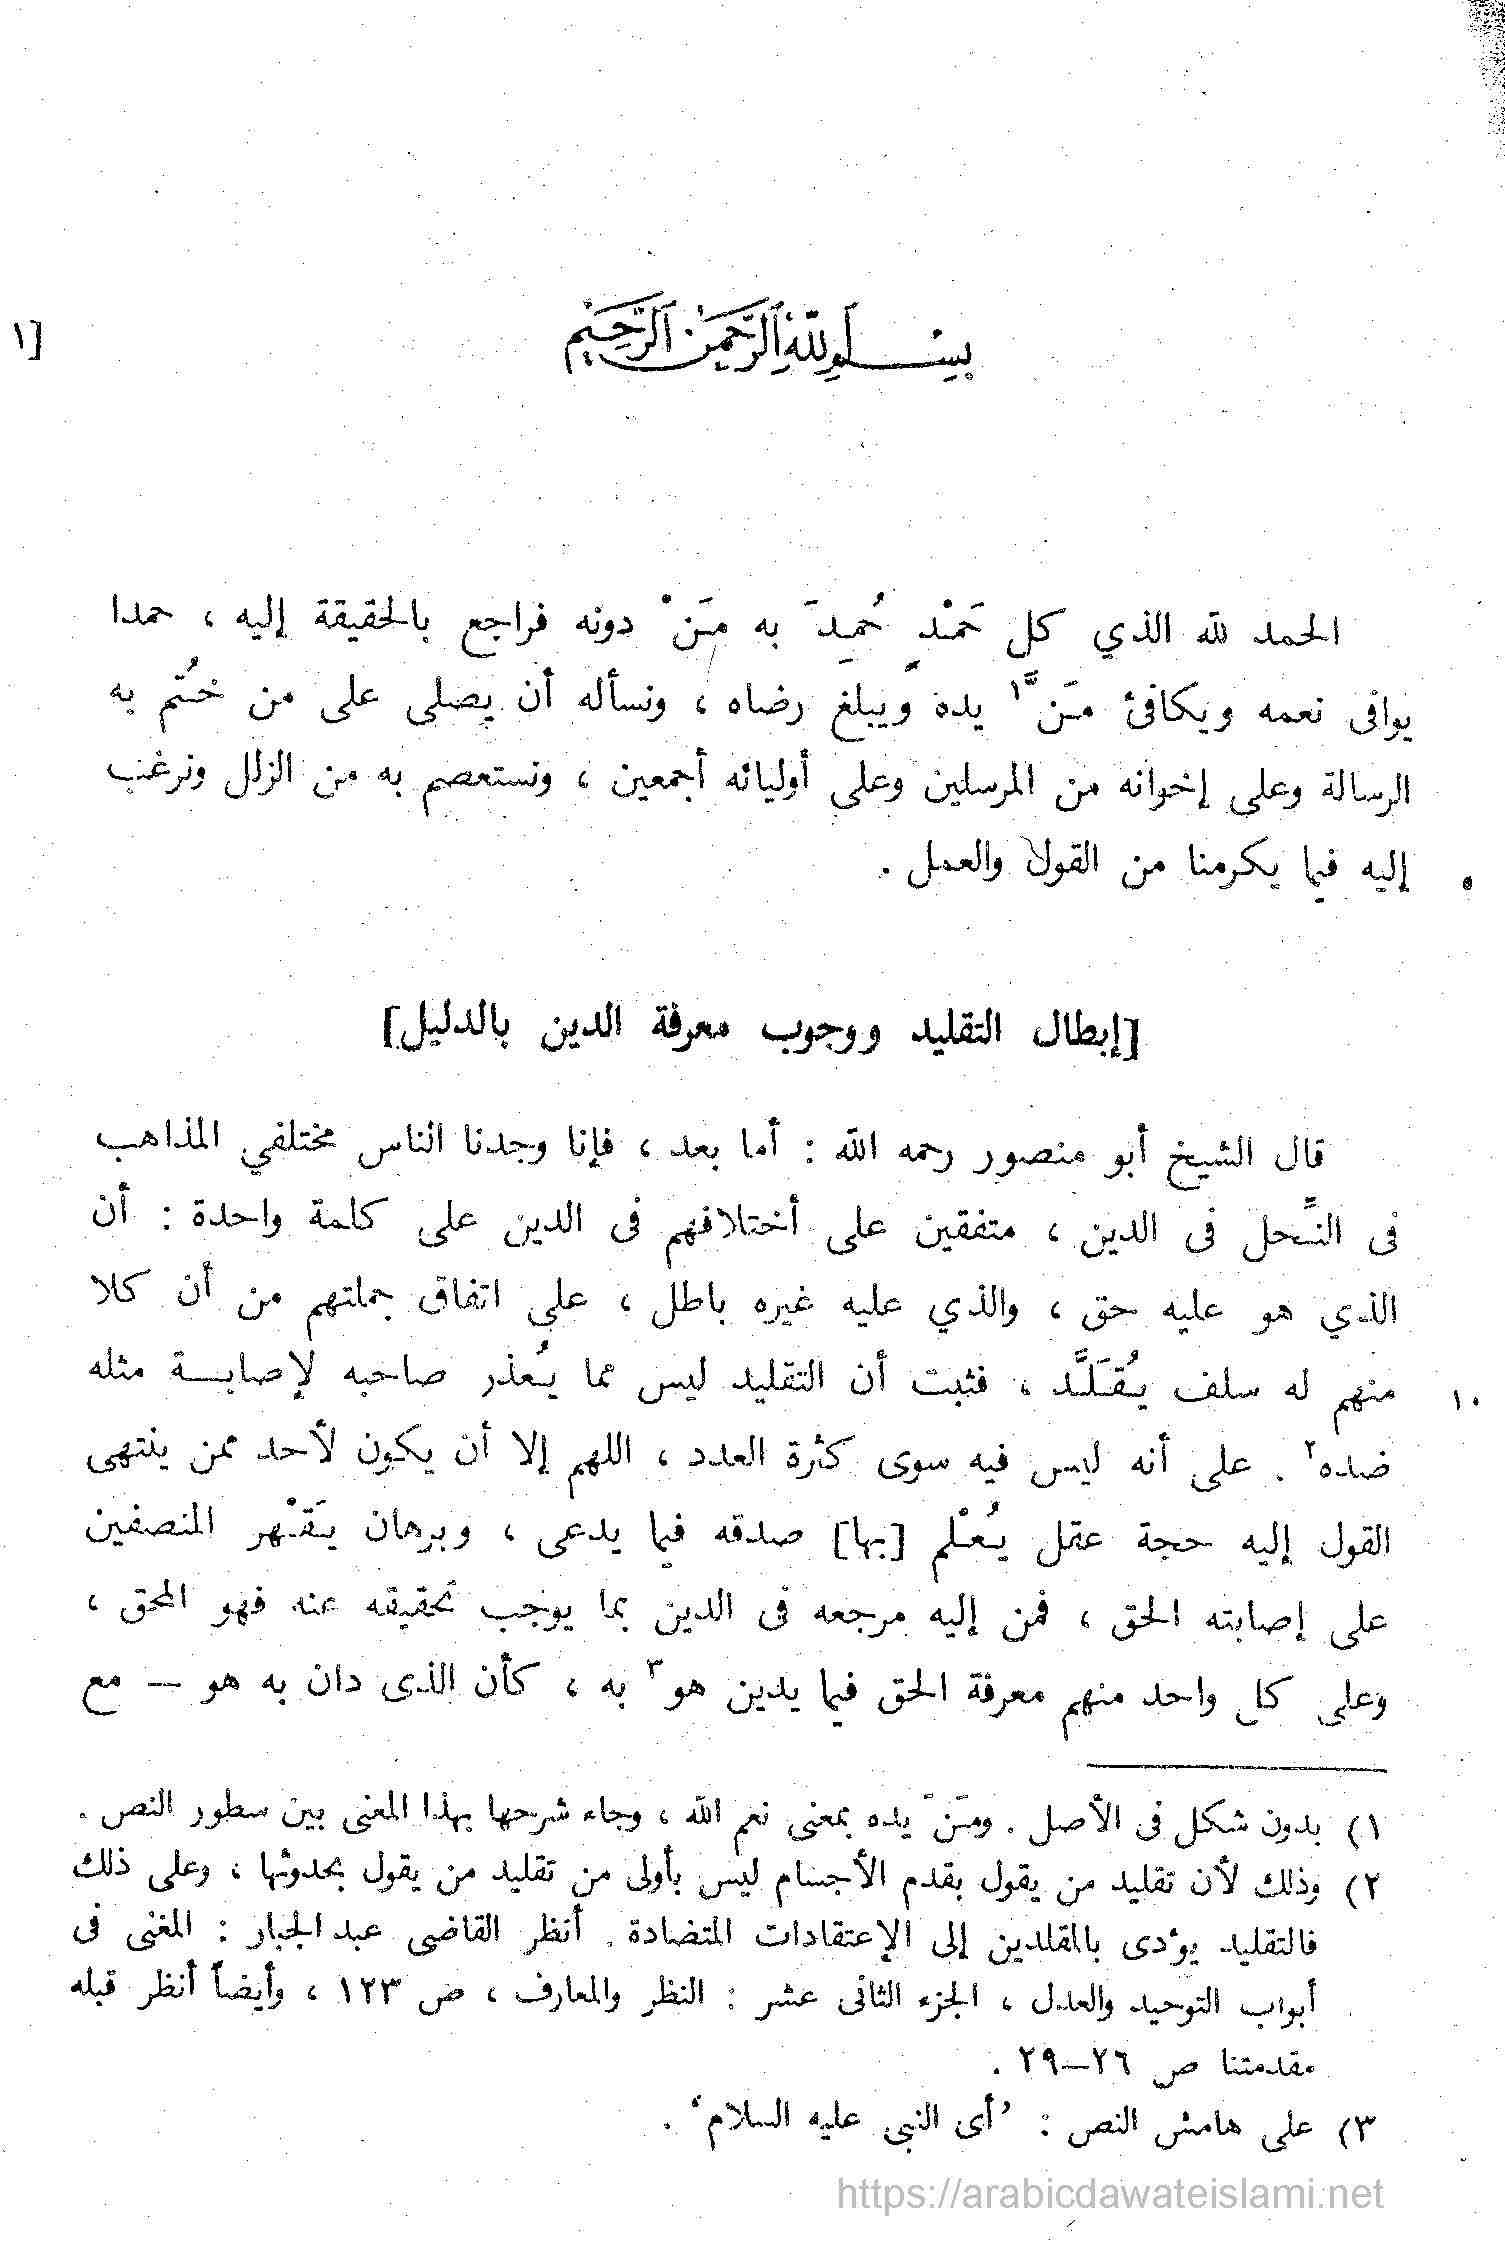 بسم الله الرحمن الرحيم
[١
الحمد لله الذي كل حَمْدٍ حُمِدَ به مَنْ دونه فراجع بالحقيقة إليه ، حمدا
يوافى نعمه ويكافئ مَنّ١ يده ويبلغ رضاه ، ونسأله أن يصلى على من خُتم به
الرسالة وعلى إخوانه من المرسلين وعلى أوليائه أجمعين ، ونستعصم به من الزلل ونرغب
٥ إليه فيما يكرمنا من القول والعمل .
[إبطال التقليد ووجوب معرفة الدين بالدليل]
قال الشيخ أبو منصور رحمه الله : أما بعد ، فإنا وجدنا الناس مختلفي المذاهب
فى النِّحل فى الدين ، متفقين على أختلافهم فى الدين على كلمة واحدة : أن
الذي هو عليه حق ، والذي عليه غيره باطل ، على اتفاق جملتهم من أن كلا
١٠ منهم له سلف يُقَلَّد ، فثبت أن التقليد ليس مما يُعذر صاحبه لإصابة مثله
ضده٢ . على أنه ليس فيه سوى كثرة العدد ، اللهم إلا أن يكون لأحد ممن ينتهى
القول إليه حجة عقل يُعْلم [بها] صدقه فيما يدعى ، وبرهان يَقْهر المنصفين
على إصابته الحق ، فمن إليه مرجعه فى الدين بما يوجب تحقيقه عنه فهو المحق ،
وعلى كل واحد منهم معرفة الحق فيما يدين هو٣ به ، كأن الذى دان به هو — مع
١) بدون شكل فى الأصل . ومَنّ يده بمعنى نعم الله ، وجاء شرحها بهذا المعنى بين سطور النص .
٢) وذلك لأن تقليد من يقول بقدم الأجسام ليس بأولى من تقليد من يقول بحدوثها ، وعلى ذلك
فالتقليد يؤدى بالمقلدين إلى الإعتقادات المتضادة . أنظر القاضى عبد الجبار : المغنى فى
أبواب التوحيد والعدل ، الجزء الثانى عشر : النظر والمعارف ، ص ١٢٣ ، وأيضاً أنظر قبله
مقدمتنا ص ٢٦–٢٩ .
٣) على هامش النص : ’أى النبى عليه السلام‘ .
https://arabicdawateislami.net